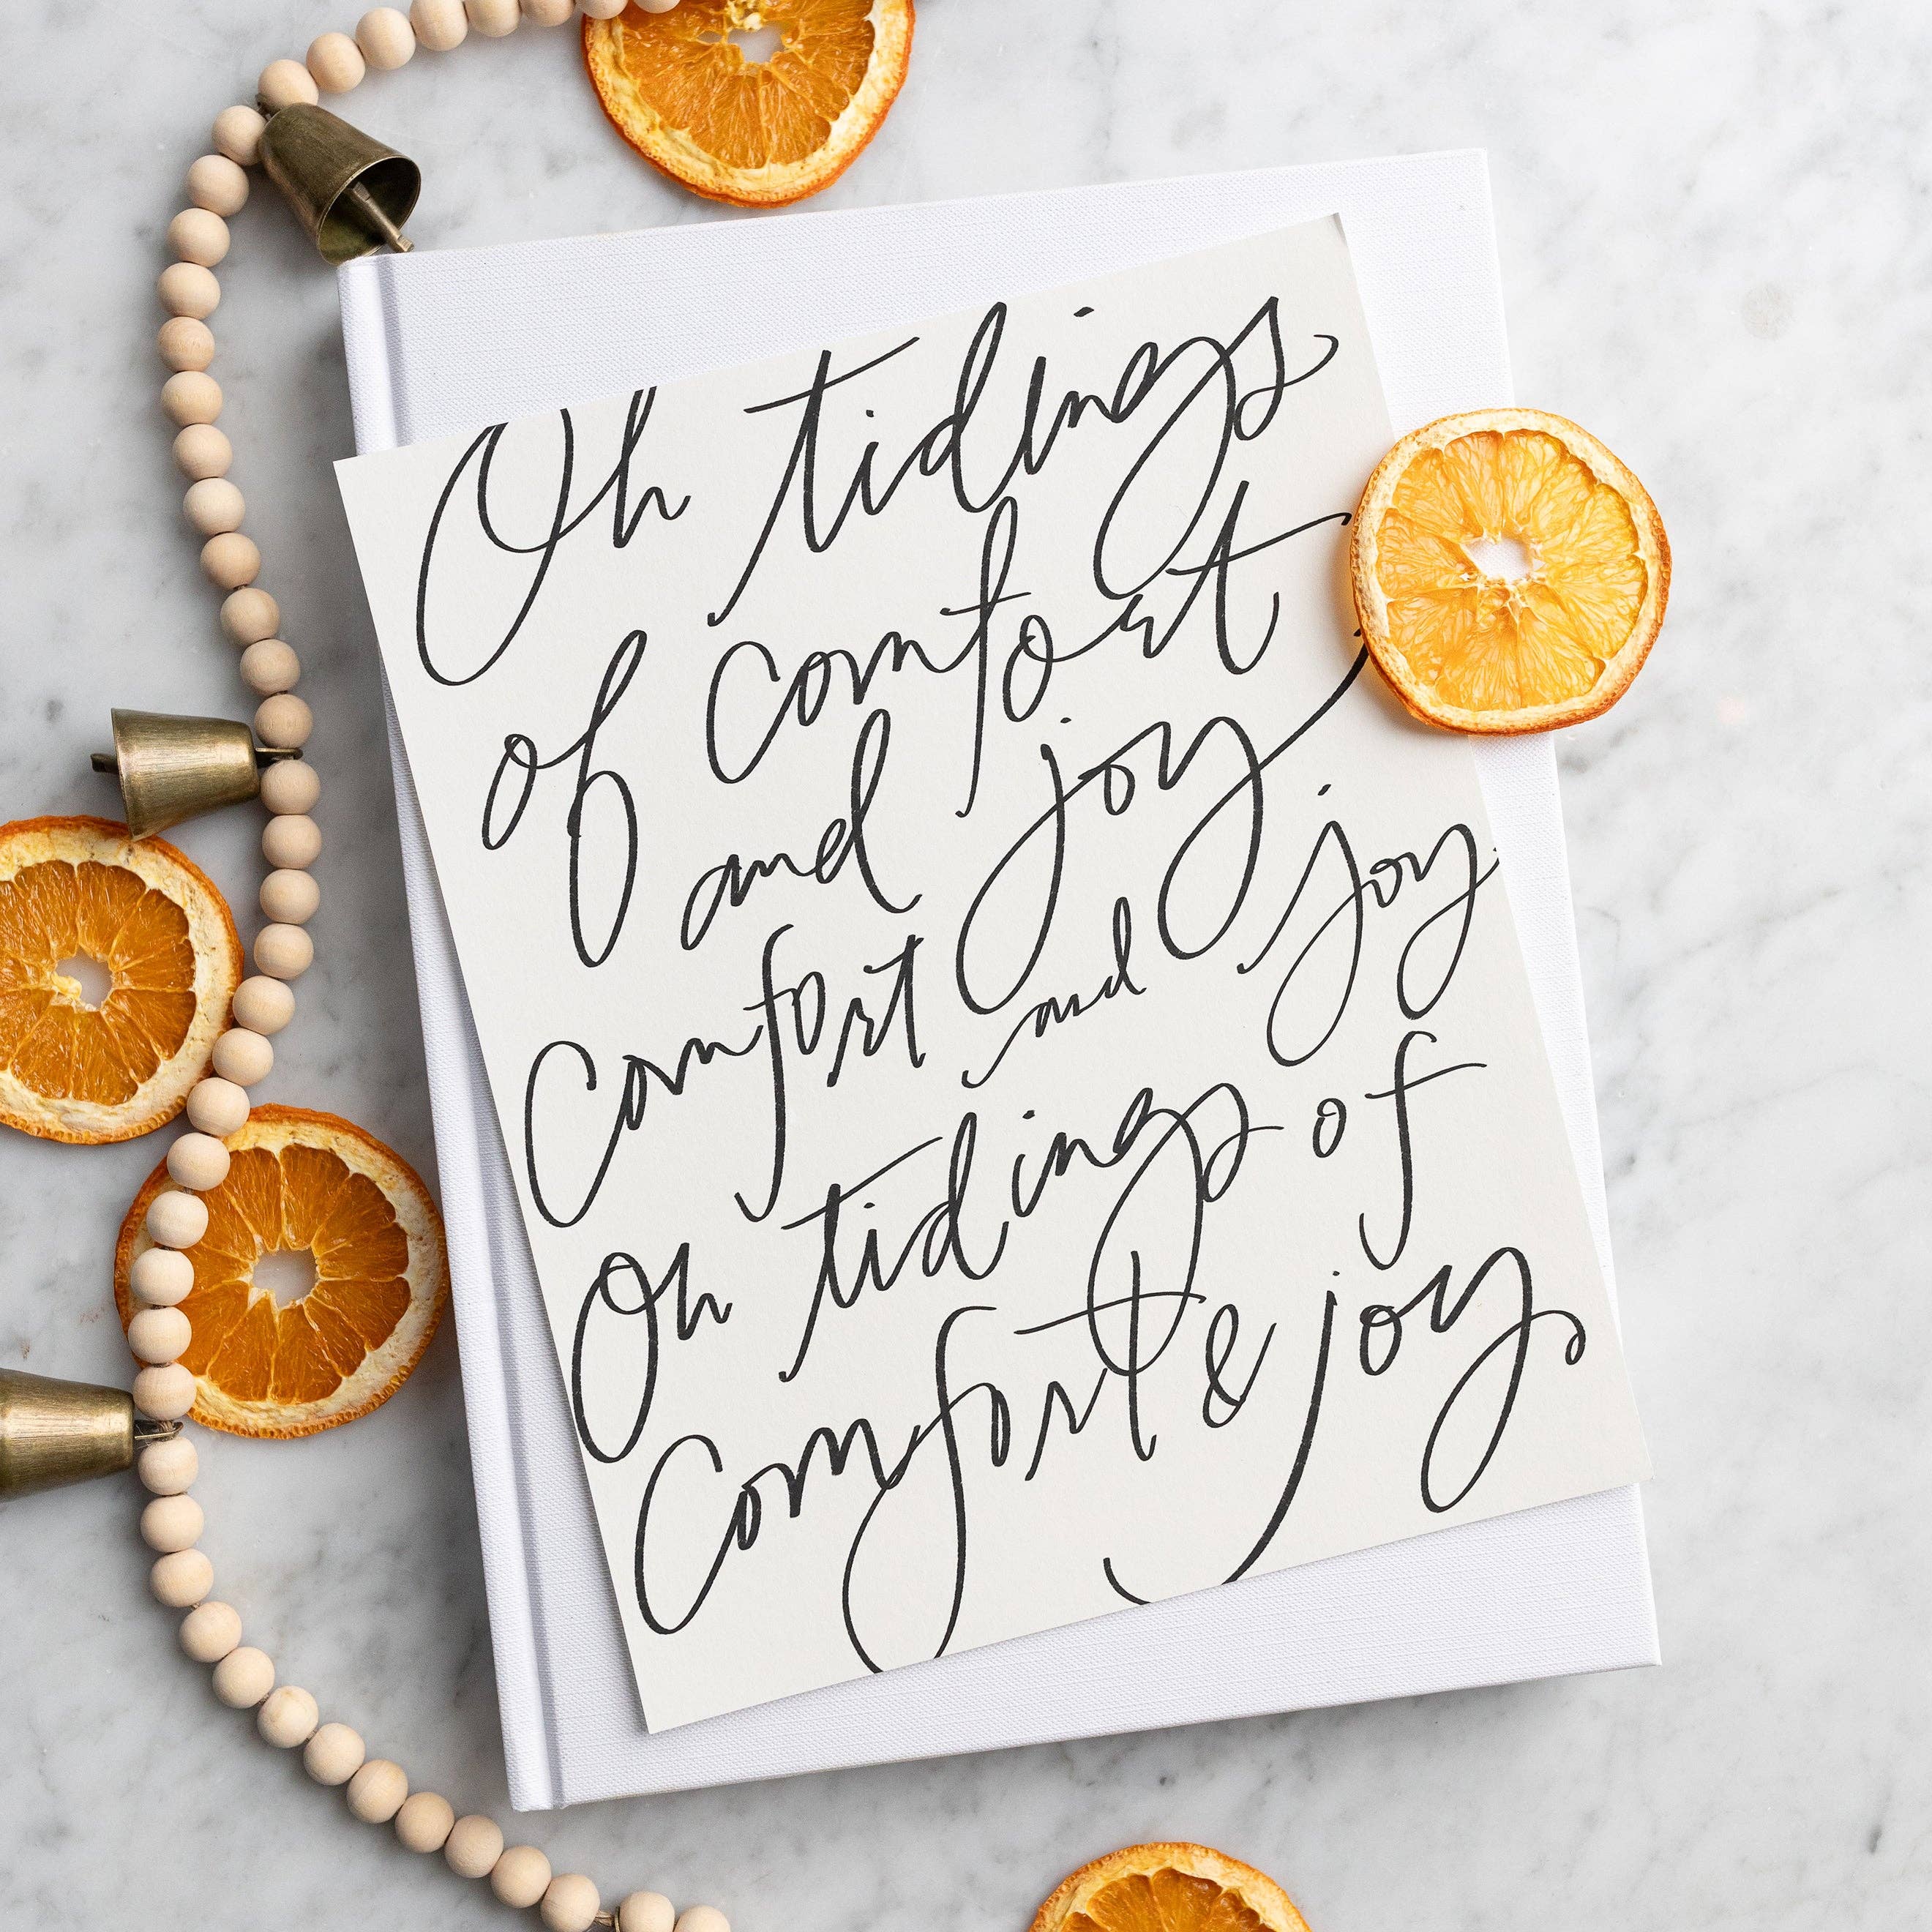 Oh tidings
of comfort
and joy
Comfort and joy
Oh tidings of
Comfort & joy